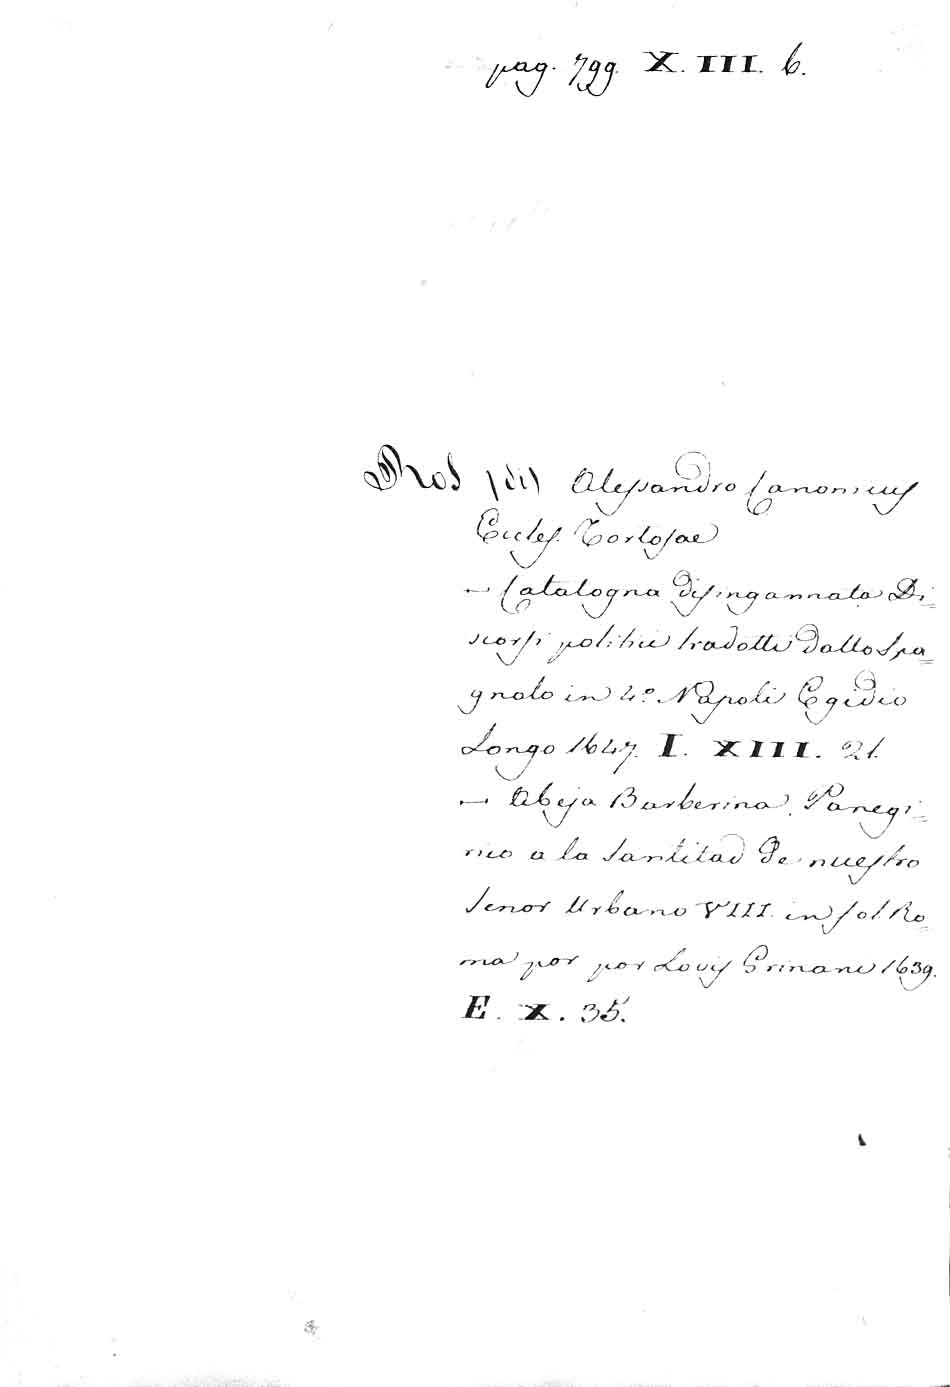 pag. 799. X. III. 6.
Ros (di) Alessandro Canonicus
Eccles. Tortosae
— Catalogna disingannata Di-
scorsi politici tradotti dallo Spa=
gnolo in 4.º Napoli Egidio
Longo 1647. I. XIII. 21.
— Abeja Barberina. Panegi=
rico a la Santitad de nuestro
Senor Urbano VIII. in fol. Ro=
ma por por Lovis Grinani 1639.
E. X. 35.